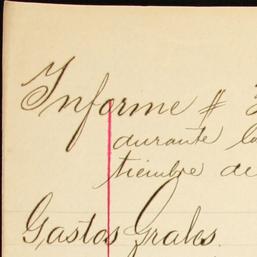 Informe #
durante la
tiembre de
Gastos Grales.